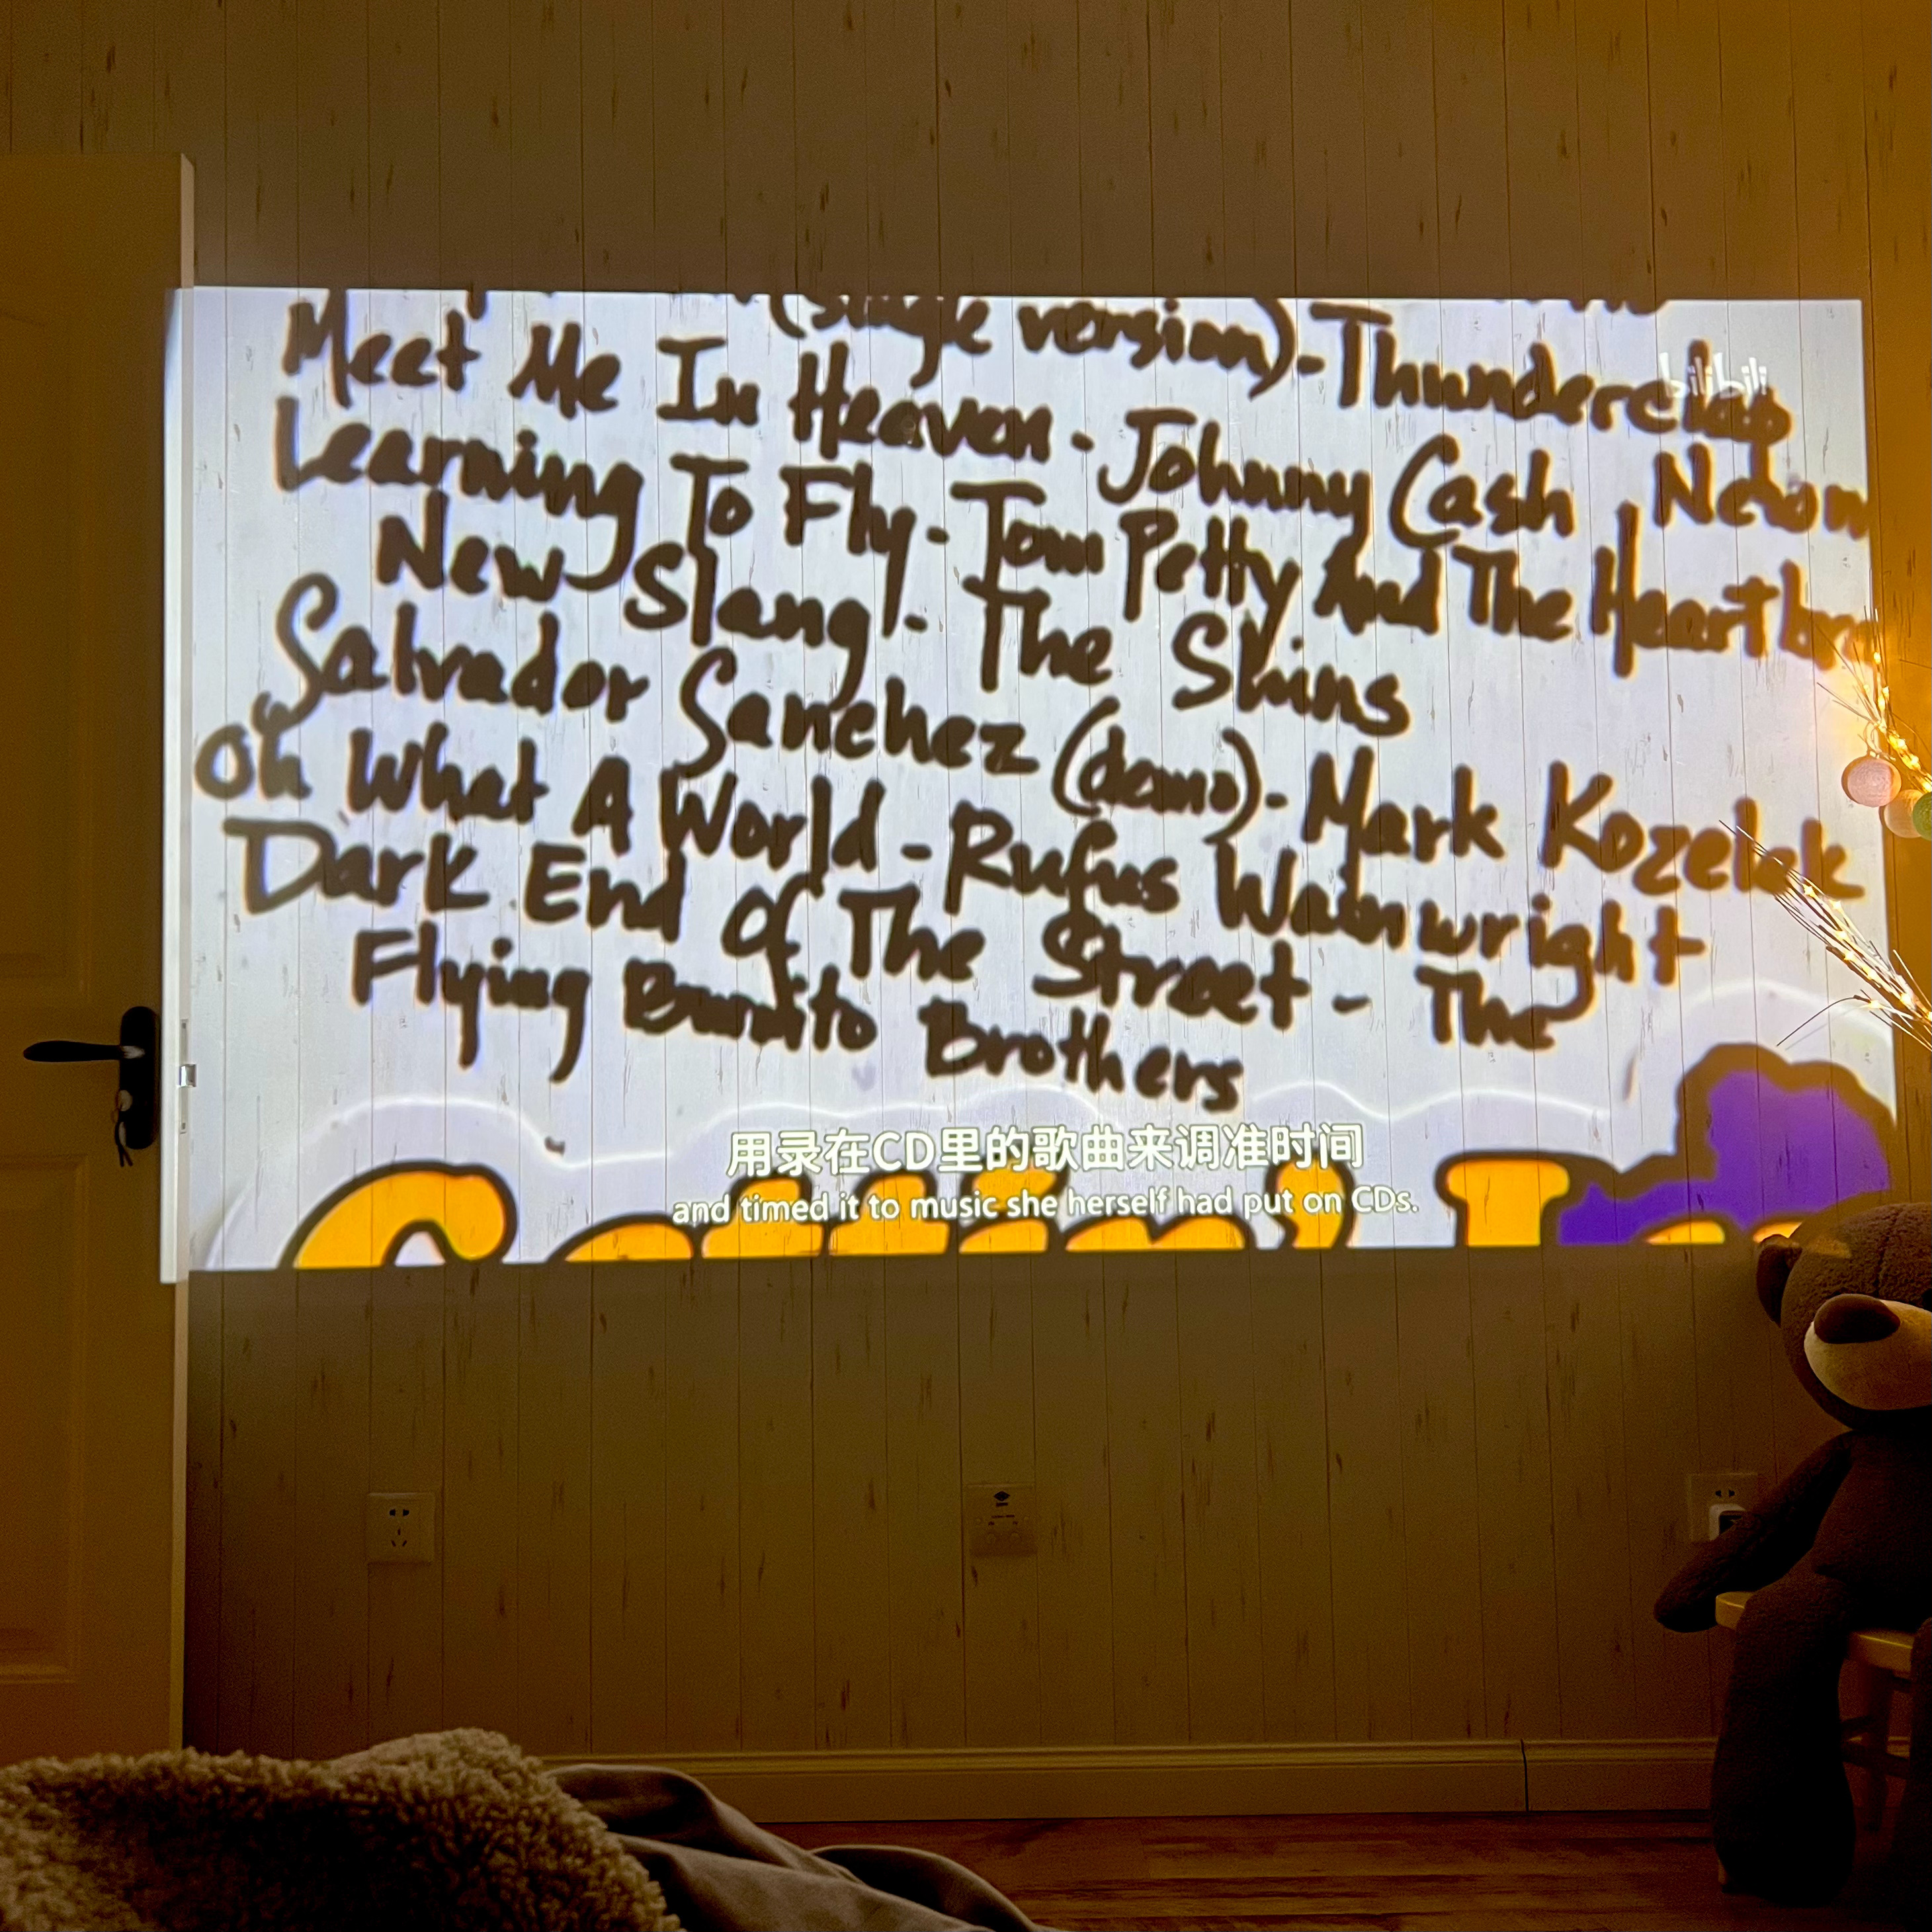 (single version) - Thunderclap
bilibili
Meet Me In Heaven - Johnny Cash
Learning To Fly - Tom Petty And The
New Slang - The Shins
Salvador Sanchez (demo) - Mark Kozelek
Oh What A World - Rufus Wainwright
Dark End Of The Street - The
Flying Burrito Brothers
用录在CD里的歌曲来调准时间
and timed it to music she herself had put on CDs.